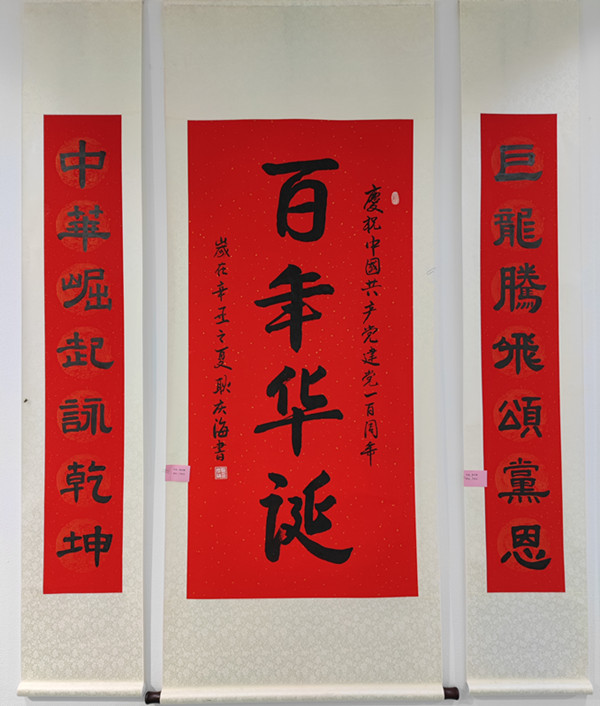 巨龍騰飛頌黨恩
慶祝中国共产党建党一百周年
百年华诞
歲在辛丑之夏耿庆海書
中華崛起詠乾坤